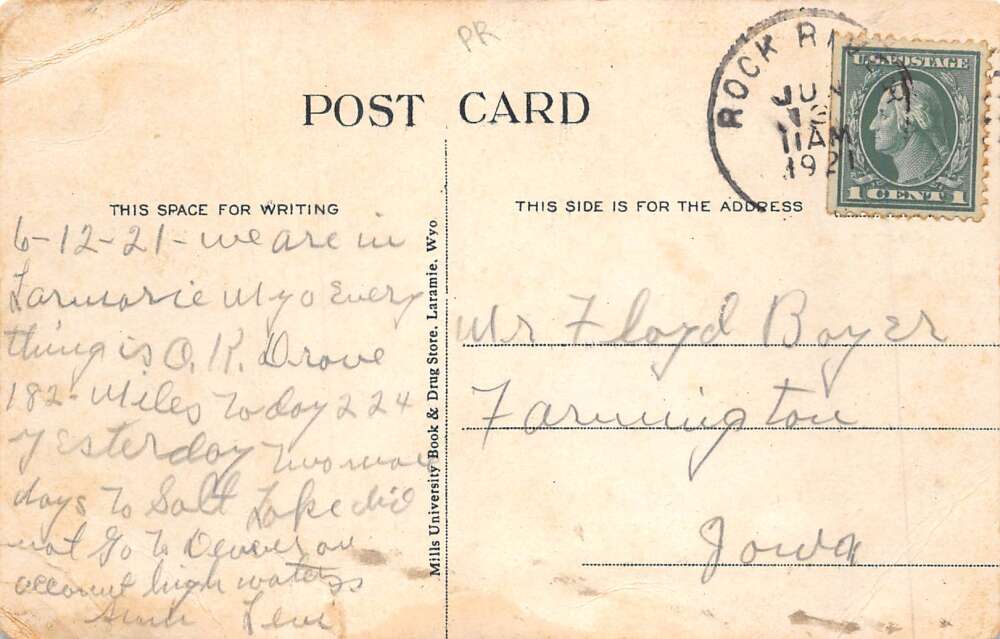 PR
ROCK RIVER
JUN
13
11 AM
1921
U.S. POSTAGE
1 CENT 1
POST CARD
THIS SPACE FOR WRITING
THIS SIDE IS FOR THE ADDRESS
6-12-21- we are in
Larmarie Wyo Every
thing is O.K. Drove
182- Miles Today 224
Yesterday Two more
days To Salt Lake did
not go To Denver on
account high waters
Lew
Mills University Book & Drug Store, Laramie, Wyo
Mr Floyd Boyer
Farmington
Iowa